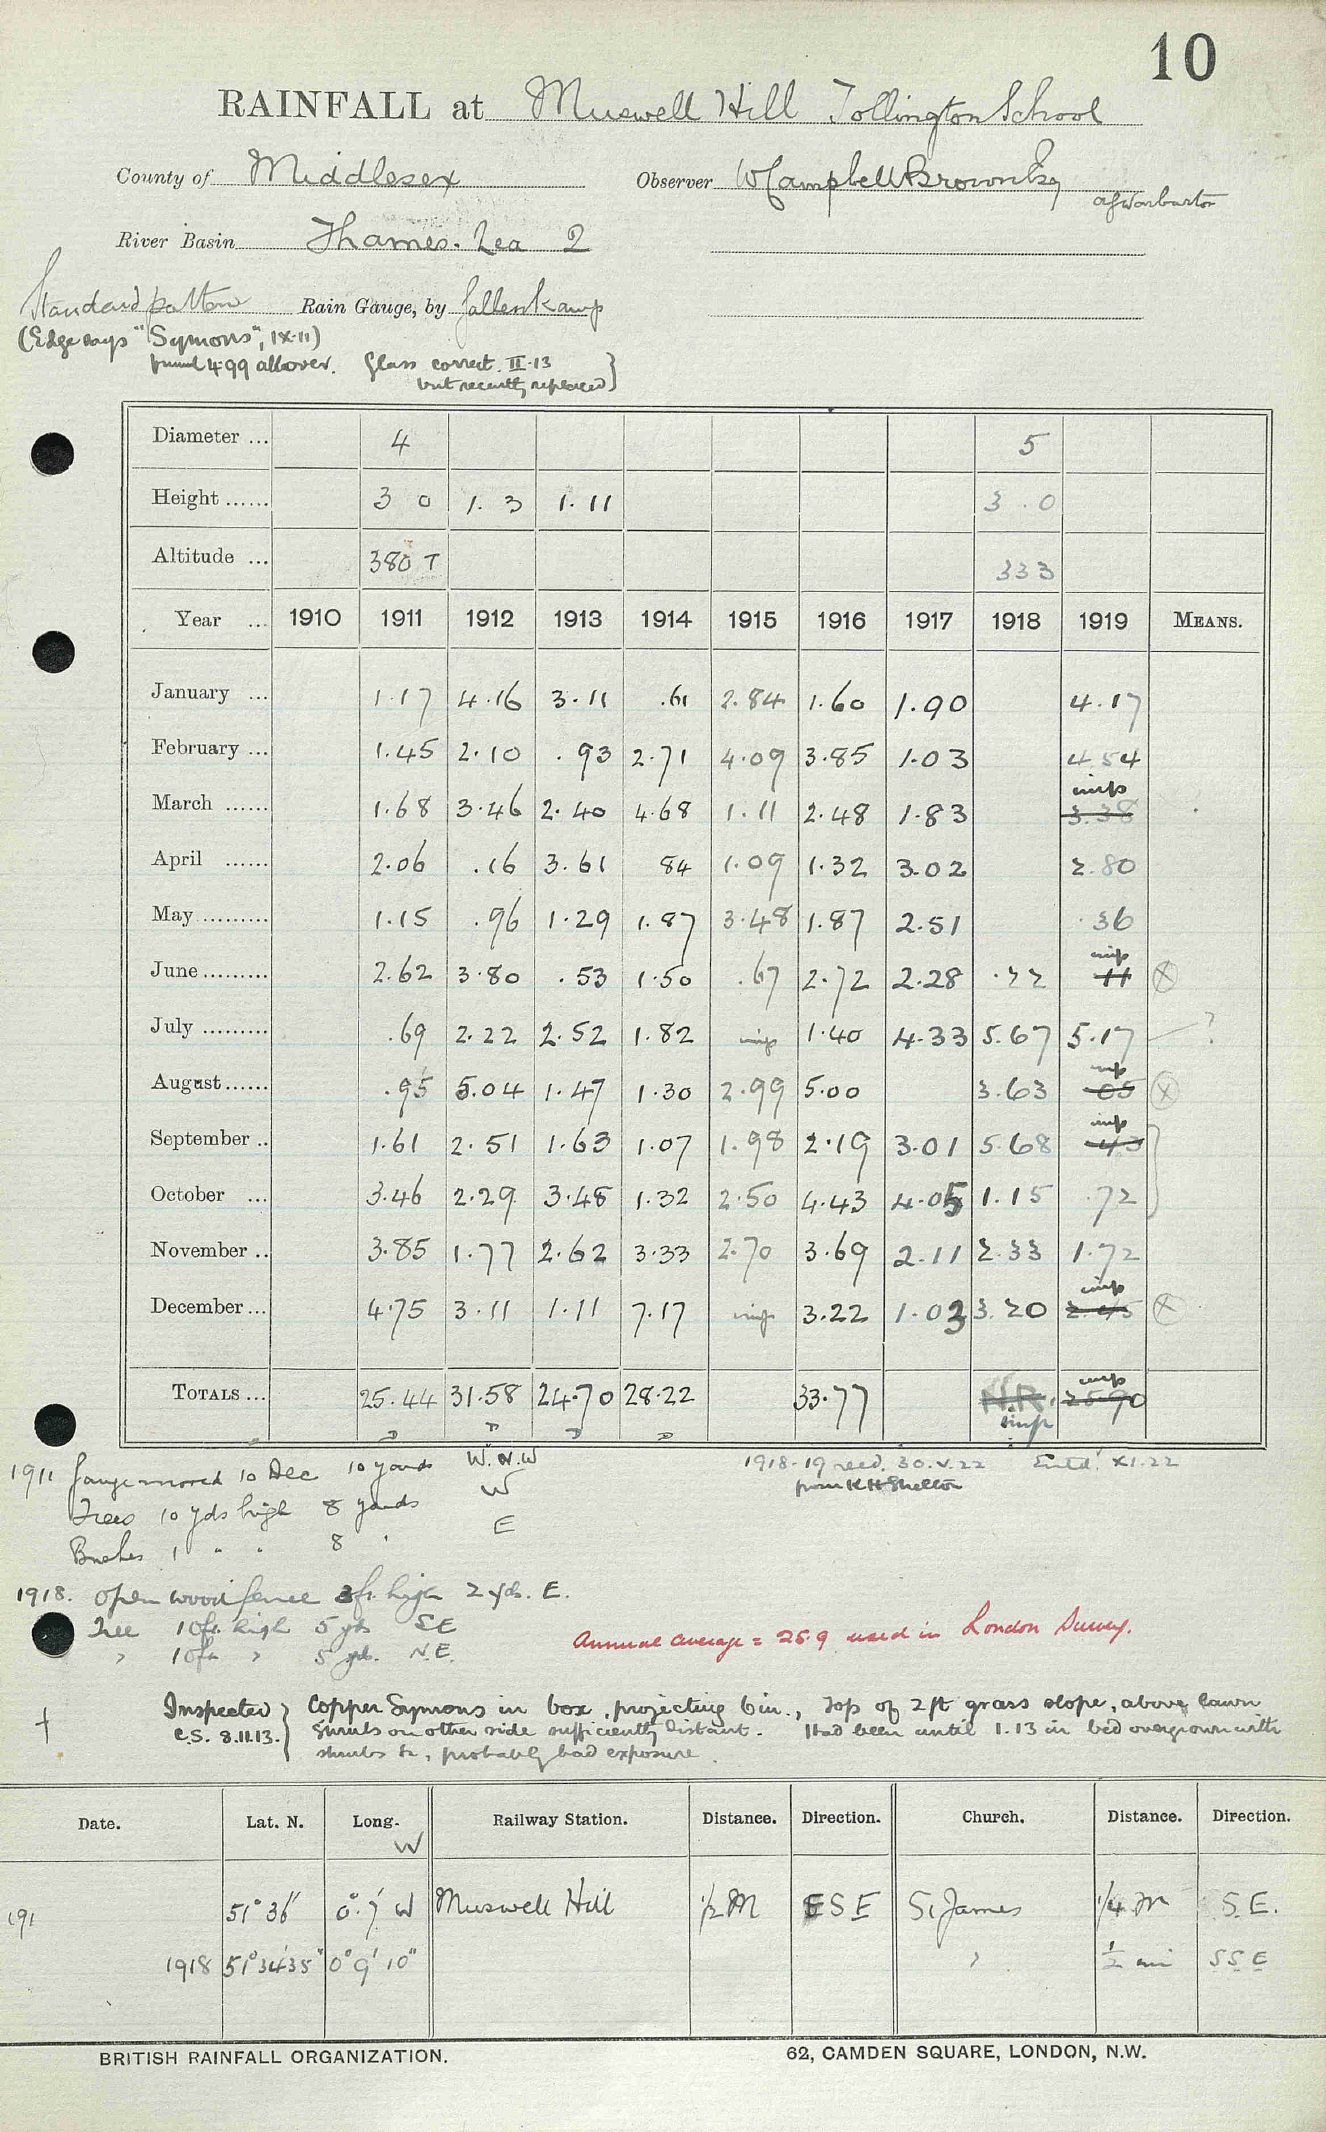 10
RAINFALL at Muswell Hill Tollington School
County of Middlesex Observer W Campbell Brown Esq
River Basin Thames. Lea 2
Standard pattern Rain Gauge, by Gallenkamp
(Edge says "Symons", IX.11)
4.99 all over. Glass correct II.13
but recently replaced}
Diameter ... 4 5
Height ...... 3 0 1. 3 1. 11 3 . 0
Altitude ... 380 T 333
Year ... 1910 1911 1912 1913 1914 1915 1916 1917 1918 1919 MEANS.
January ... 1.17 4.16 3.11 .61 2.84 1.60 1.90 4.17
February ... 1.45 2.10 .93 2.71 4.09 3.85 1.03 4.54
March ...... 1.68 3.46 2.40 4.68 1.11 2.48 1.83 imp 3.38
April ...... 2.06 .16 3.61 84 1.09 1.32 3.02 2.80
May ......... 1.15 .96 1.29 1.87 3.48 1.87 2.51 .36
June ......... 2.62 3.80 .53 1.50 .67 2.72 2.28 .22 imp 11 X
July ......... .69 2.22 2.52 1.82 imp 1.40 4.33 5.67 5.17 ?
August ...... .95 5.04 1.47 1.30 2.99 5.00 3.63 imp 05 X
September .. 1.61 2.51 1.63 1.07 1.98 2.19 3.01 5.68 imp 43
October ... 3.46 2.29 3.48 1.32 2.50 4.43 4.05 1.15 .72
November .. 3.85 1.77 2.62 3.33 2.70 3.69 2.11 2.33 1.72
December ... 4.75 3.11 1.11 7.17 imp 3.22 1.03 3.20 imp 2.45 X
TOTALS ... 25.44 31.58 24.70 28.22 33.77 N.R. imp imp 25.90
1911 Gauge moved 10 Dec 10 yards W.N.W
Trees 10 yds high 8 yards W
Bushes 1 " " 8 " E
1918-19 recd. 30.V.22 Entd. XI.22
from K H Shelton
1918. Open wood fence 3ft. high 2 yds. E.
Tree 10ft. high 5 yds SE
" 10ft " 5 yds. N.E.
Annual average = 25.9 used in London Survey.
† Inspected C.S. 8.11.13. } Copper Symons in box, projecting 6in., top of 2 ft grass slope, above lawn
Shrubs on other side sufficiently distant. Had been until 1.13 in bed overgrown with
shrubs &c, probably bad exposure.
Date. Lat. N. Long. W Railway Station. Distance. Direction. Church. Distance. Direction.
191 51° 36' 0° 7' W Muswell Hill ½ M ESE St James ¼ M S.E.
1918 51° 34' 35" 0° 9' 10" " ½ mi SSE
BRITISH RAINFALL ORGANIZATION. 62, CAMDEN SQUARE, LONDON, N.W.